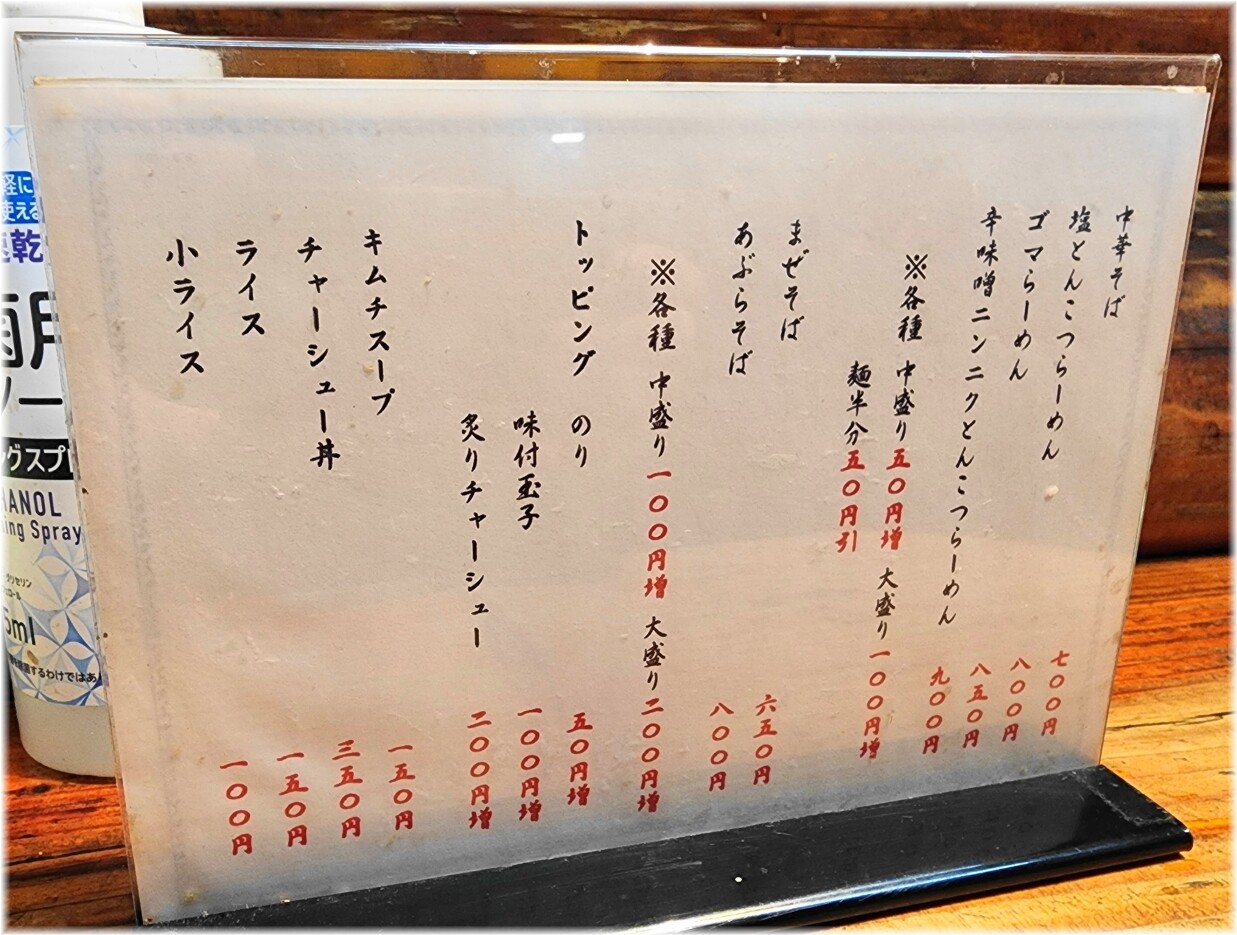 中華そば 七〇〇円
塩とんこつらーめん 八〇〇円
ゴマらーめん 八五〇円
辛味噌ニンニクとんこつらーめん 九〇〇円
※各種 中盛り 五〇円増 大盛り 一〇〇円増
麺半分 五〇円引
まぜそば 六五〇円
あぶらそば 八〇〇円
※各種 中盛り 一〇〇円増 大盛り 二〇〇円増
トッピング のり 五〇円増
味付玉子 一〇〇円増
炙りチャーシュー 二〇〇円増
キムチスープ 一五〇円
チャーシュー丼 三五〇円
ライス 一五〇円
小ライス 一〇〇円
軽に
使える
速乾
ングスプ
HANOL
ing Spray
5ml
するわけではあ